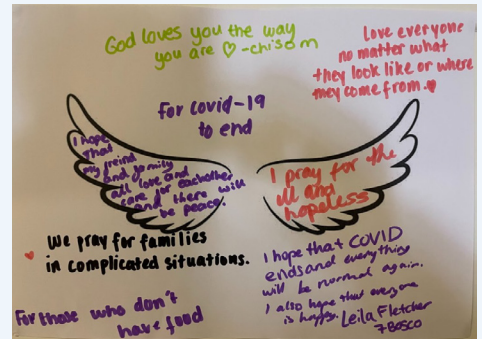 God loves you the way
you are ♡ -chisom
Love everyone
no matter what
they look like or where
they come from.
For covid-19
to end
I hope
that
my freind
and family
all love and
care for eachother
and there will
be peace.
I pray for the
ill and
hopeless
We pray for families
in complicated situations.
I hope that COVID
ends and everything
will be normal again.
I also hope that everyone
is happy. Leila Fletcher
7 BOSCO
For those who don't
have food